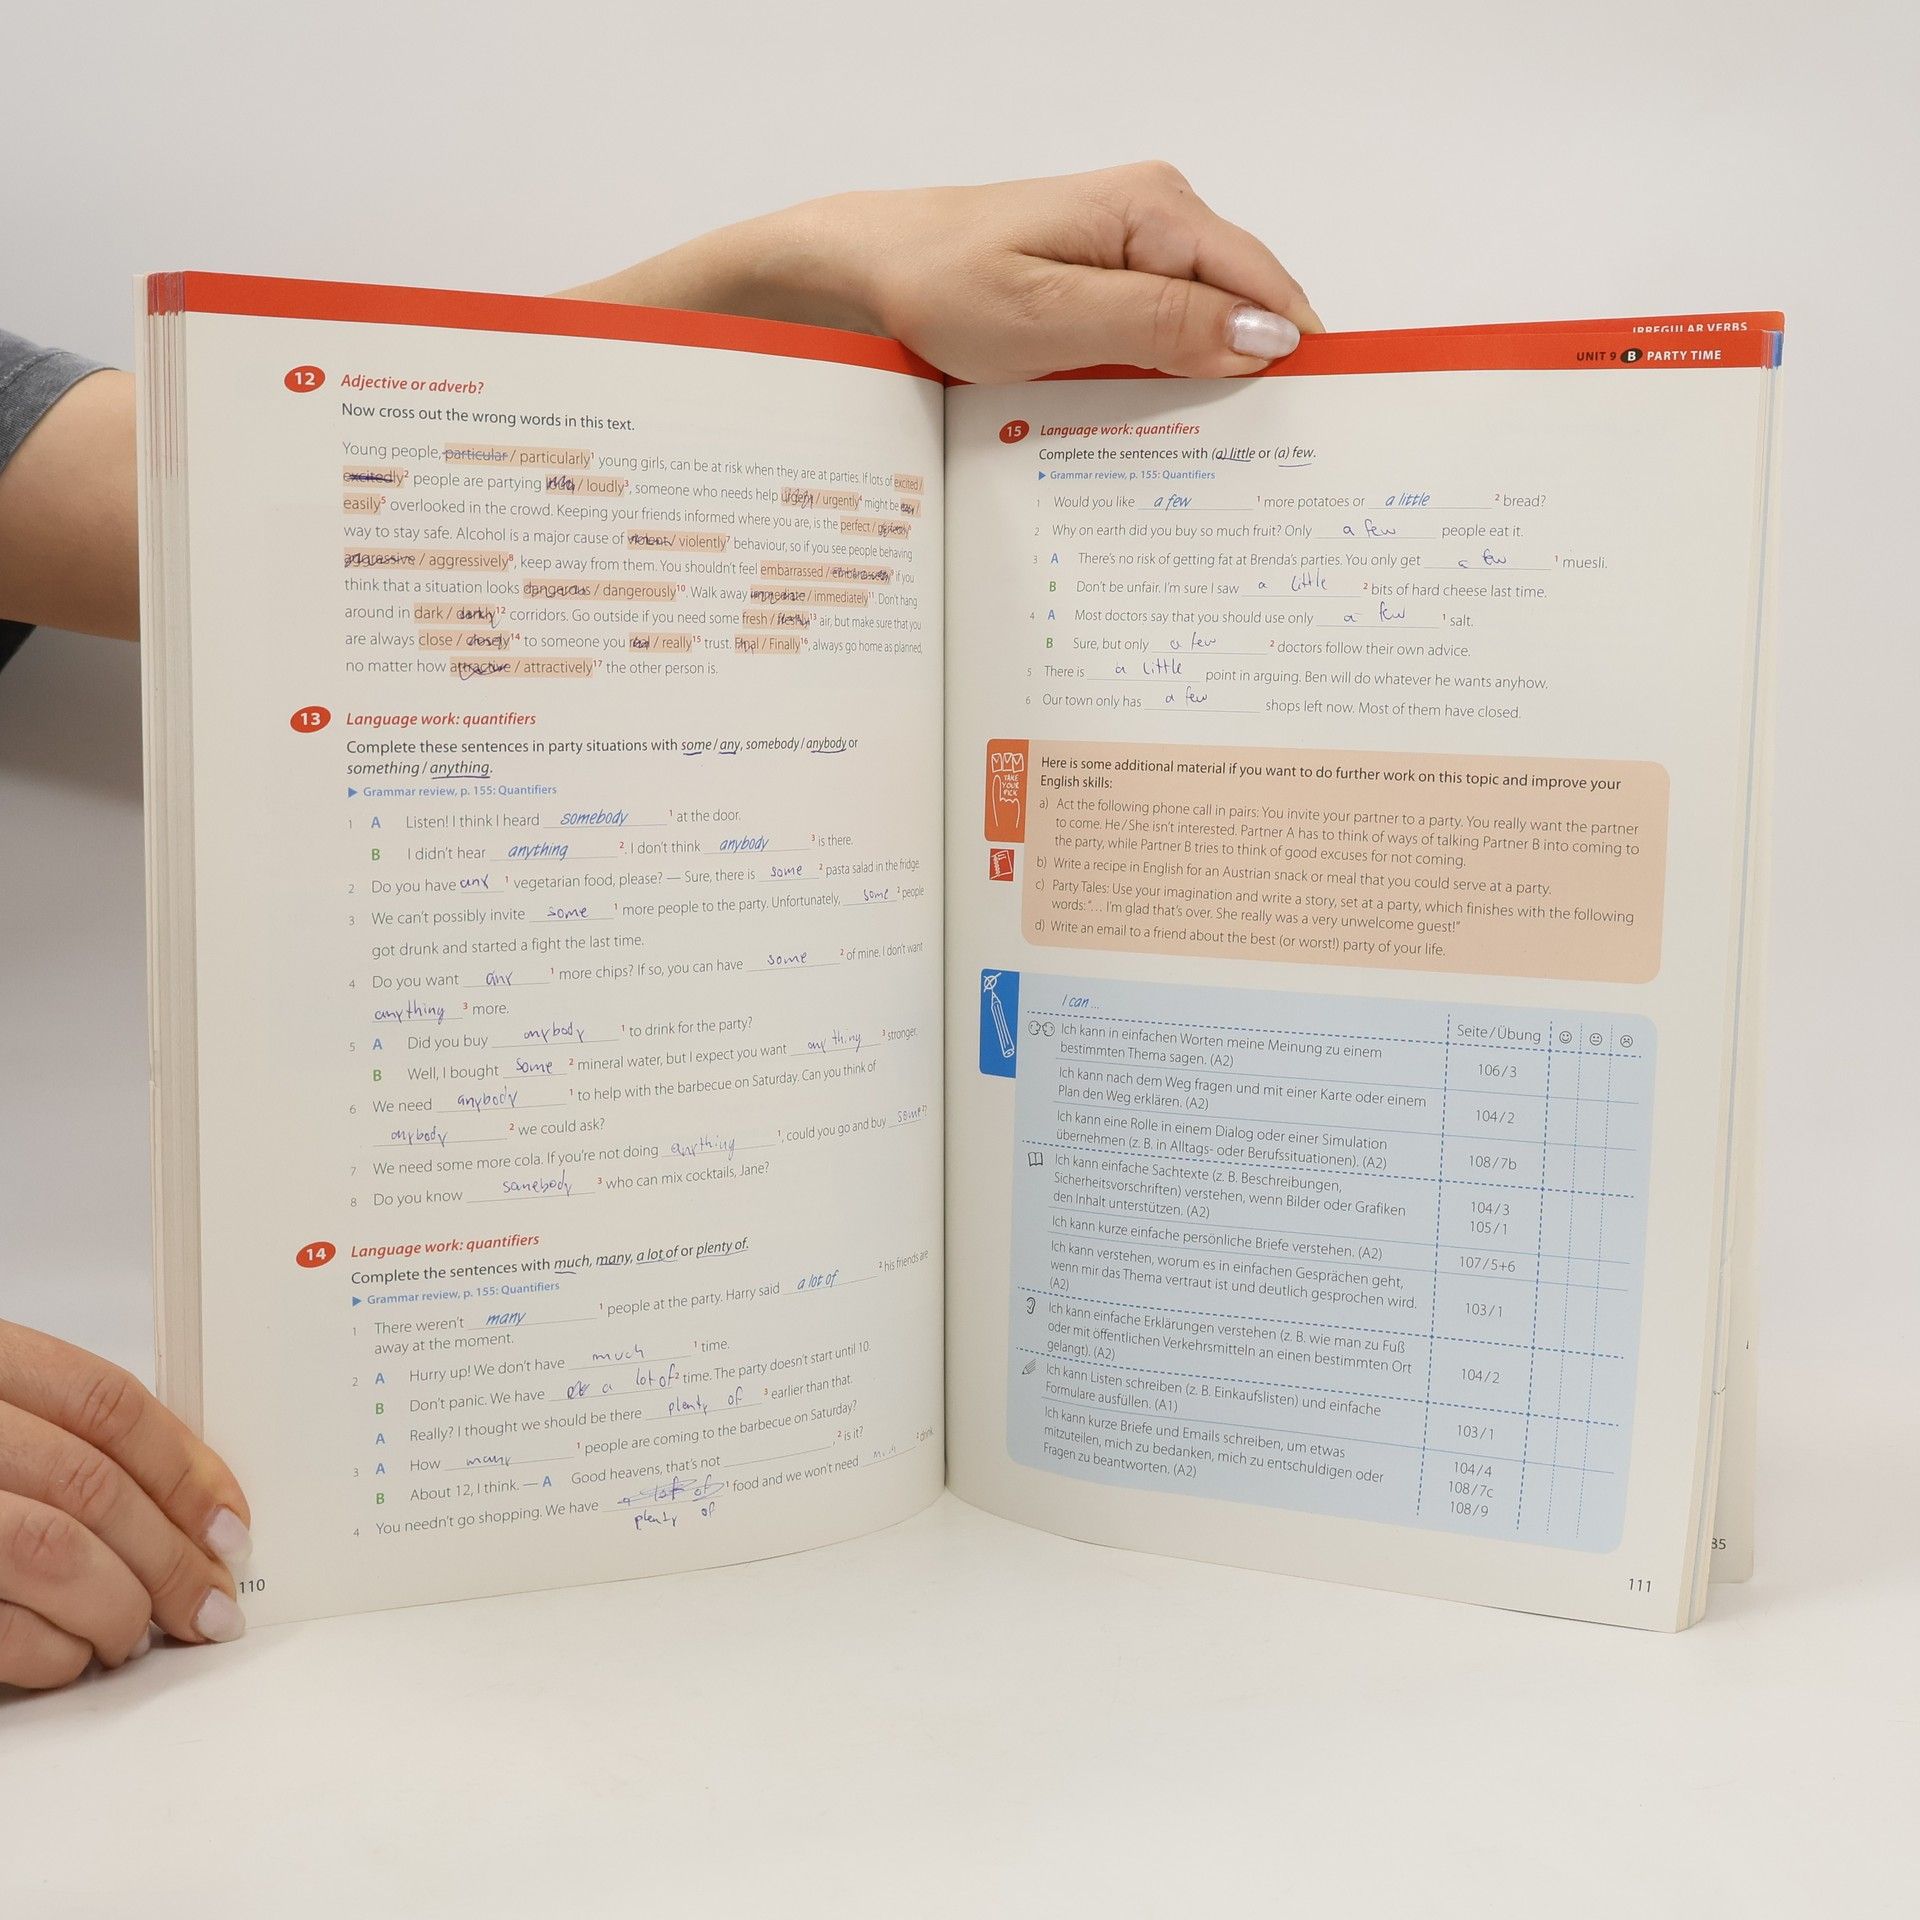 12 Adjective or adverb?
Now cross out the wrong words in this text.
Young people, particular / particularly¹ young girls, can be at risk when they are at parties. If lots of excited /
excitedly² people are partying loud / loudly³, someone who needs help urgent / urgently⁴ might be easy /
easily⁵ overlooked in the crowd. Keeping your friends informed where you are, is the perfect / perfectly⁶
way to stay safe. Alcohol is a major cause of violent / violently⁷ behaviour, so if you see people behaving
aggressive / aggressively⁸, keep away from them. You shouldn't feel embarrassed / embarrassedly⁹ if you
think that a situation looks dangerous / dangerously¹⁰. Walk away immediate / immediately¹¹. Don't hang
around in dark / darkly¹² corridors. Go outside if you need some fresh / freshly¹³ air, but make sure that you
are always close / closely¹⁴ to someone you real / really¹⁵ trust. Final / Finally¹⁶, always go home as planned,
no matter how attractive / attractively¹⁷ the other person is.
13 Language work: quantifiers
Complete these sentences in party situations with some / any, somebody / anybody or
something / anything.
Grammar review, p. 155: Quantifiers
1 A Listen! I think I heard somebody ¹ at the door.
B I didn't hear anything ². I don't think anybody ³ is there.
2 Do you have any ¹ vegetarian food, please? — Sure, there is some ² pasta salad in the fridge
3 We can't possibly invite some ¹ more people to the party. Unfortunately, some ² people
got drunk and started a fight the last time.
4 Do you want any ¹ more chips? If so, you can have some ² of mine. I don't want
anything ³ more.
5 A Did you buy anybody ¹ to drink for the party?
B Well, I bought some ² mineral water, but I expect you want anything ³ stronger.
6 We need anybody ¹ to help with the barbecue on Saturday. Can you think of
anybody ² we could ask?
7 We need some more cola. If you're not doing anything ¹, could you go and buy some ²?
8 Do you know somebody ³ who can mix cocktails, Jane?
14 Language work: quantifiers
Complete the sentences with much, many, a lot of or plenty of.
Grammar review, p. 155: Quantifiers
1 There weren't many ¹ people at the party. Harry said a lot of ² his friends are
away at the moment.
2 A Hurry up! We don't have much ¹ time.
B Don't panic. We have a lot of ² time. The party doesn't start until 10.
A Really? I thought we should be there plenty of ³ earlier than that.
3 A How many ¹ people are coming to the barbecue on Saturday?
B About 12, I think. — A Good heavens, that's not ,² is it?
4 You needn't go shopping. We have a lot of ¹ food and we won't need much ² drink
plenty of
110
IRREGULAR VERBS
UNIT 9 B PARTY TIME
15 Language work: quantifiers
Complete the sentences with (a) little or (a) few.
Grammar review, p. 155: Quantifiers
1 Would you like a few ¹ more potatoes or a little ² bread?
2 Why on earth did you buy so much fruit? Only a few people eat it.
3 A There's no risk of getting fat at Brenda's parties. You only get a few ¹ muesli.
B Don't be unfair. I'm sure I saw a little ² bits of hard cheese last time.
4 A Most doctors say that you should use only a few ¹ salt.
B Sure, but only a few ² doctors follow their own advice.
5 There is a little point in arguing. Ben will do whatever he wants anyhow.
6 Our town only has a few shops left now. Most of them have closed.
TAKE
YOUR
PICK
Here is some additional material if you want to do further work on this topic and improve your
English skills:
a) Act the following phone call in pairs: You invite your partner to a party. You really want the partner
to come. He / She isn't interested. Partner A has to think of ways of talking Partner B into coming to
the party, while Partner B tries to think of good excuses for not coming.
b) Write a recipe in English for an Austrian snack or meal that you could serve at a party.
c) Party Tales: Use your imagination and write a story, set at a party, which finishes with the following
words: "… I'm glad that's over. She really was a very unwelcome guest!"
d) Write an email to a friend about the best (or worst!) party of your life.
I can ...
Seite / Übung
Ich kann in einfachen Worten meine Meinung zu einem
bestimmten Thema sagen. (A2)
106 / 3
Ich kann nach dem Weg fragen und mit einer Karte oder einem
Plan den Weg erklären. (A2)
104 / 2
Ich kann eine Rolle in einem Dialog oder einer Simulation
übernehmen (z. B. in Alltags- oder Berufssituationen). (A2)
108 / 7b
Ich kann einfache Sachtexte (z. B. Beschreibungen,
Sicherheitsvorschriften) verstehen, wenn Bilder oder Grafiken
den Inhalt unterstützen. (A2)
104 / 3
105 / 1
Ich kann kurze einfache persönliche Briefe verstehen. (A2)
107 / 5+6
Ich kann verstehen, worum es in einfachen Gesprächen geht,
wenn mir das Thema vertraut ist und deutlich gesprochen wird.
(A2)
103 / 1
Ich kann einfache Erklärungen verstehen (z. B. wie man zu Fuß
oder mit öffentlichen Verkehrsmitteln an einen bestimmten Ort
gelangt). (A2)
104 / 2
Ich kann Listen schreiben (z. B. Einkaufslisten) und einfache
Formulare ausfüllen. (A1)
103 / 1
Ich kann kurze Briefe und Emails schreiben, um etwas
mitzuteilen, mich zu bedanken, mich zu entschuldigen oder
Fragen zu beantworten. (A2)
104 / 4
108 / 7c
108 / 9
111